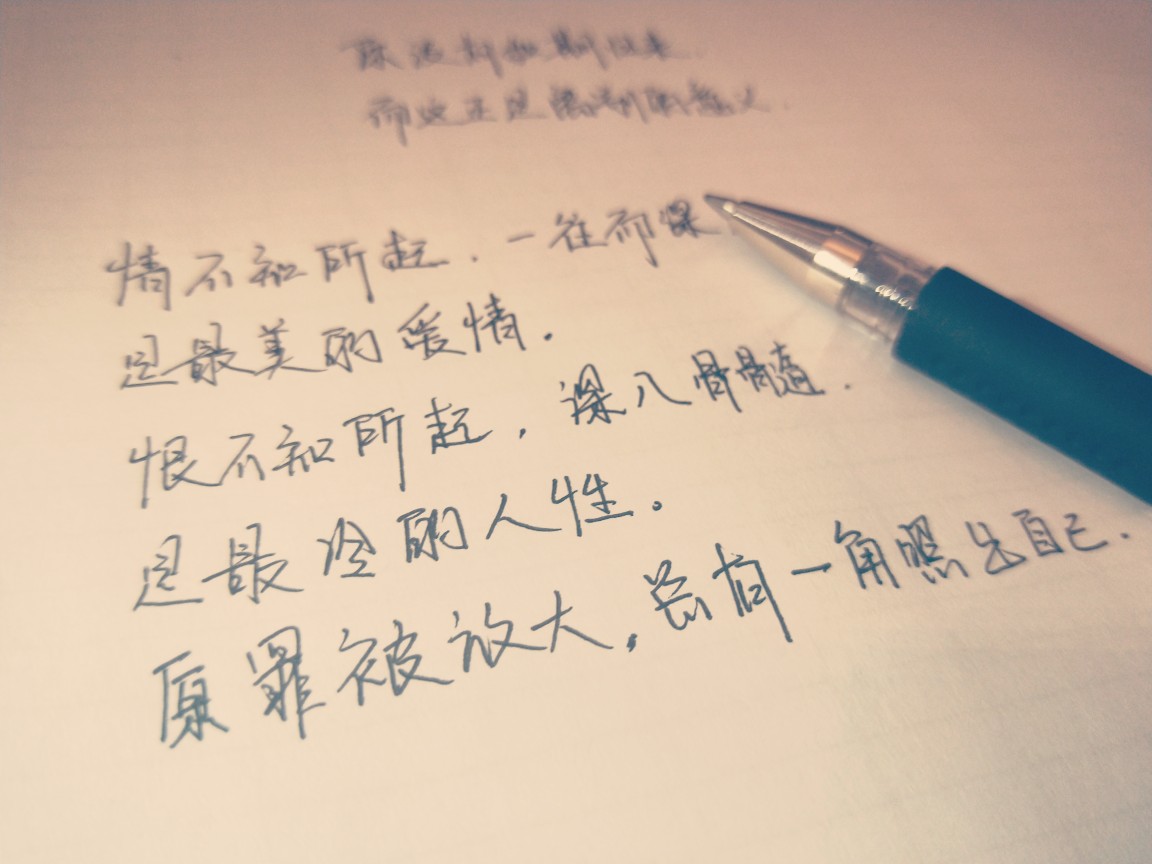 而这正是
情不知所起.一往而深
是最美的爱情.
恨不知所起,深入骨髓.
是最冷的人性.
原罪被放大,总有一角照出自己.